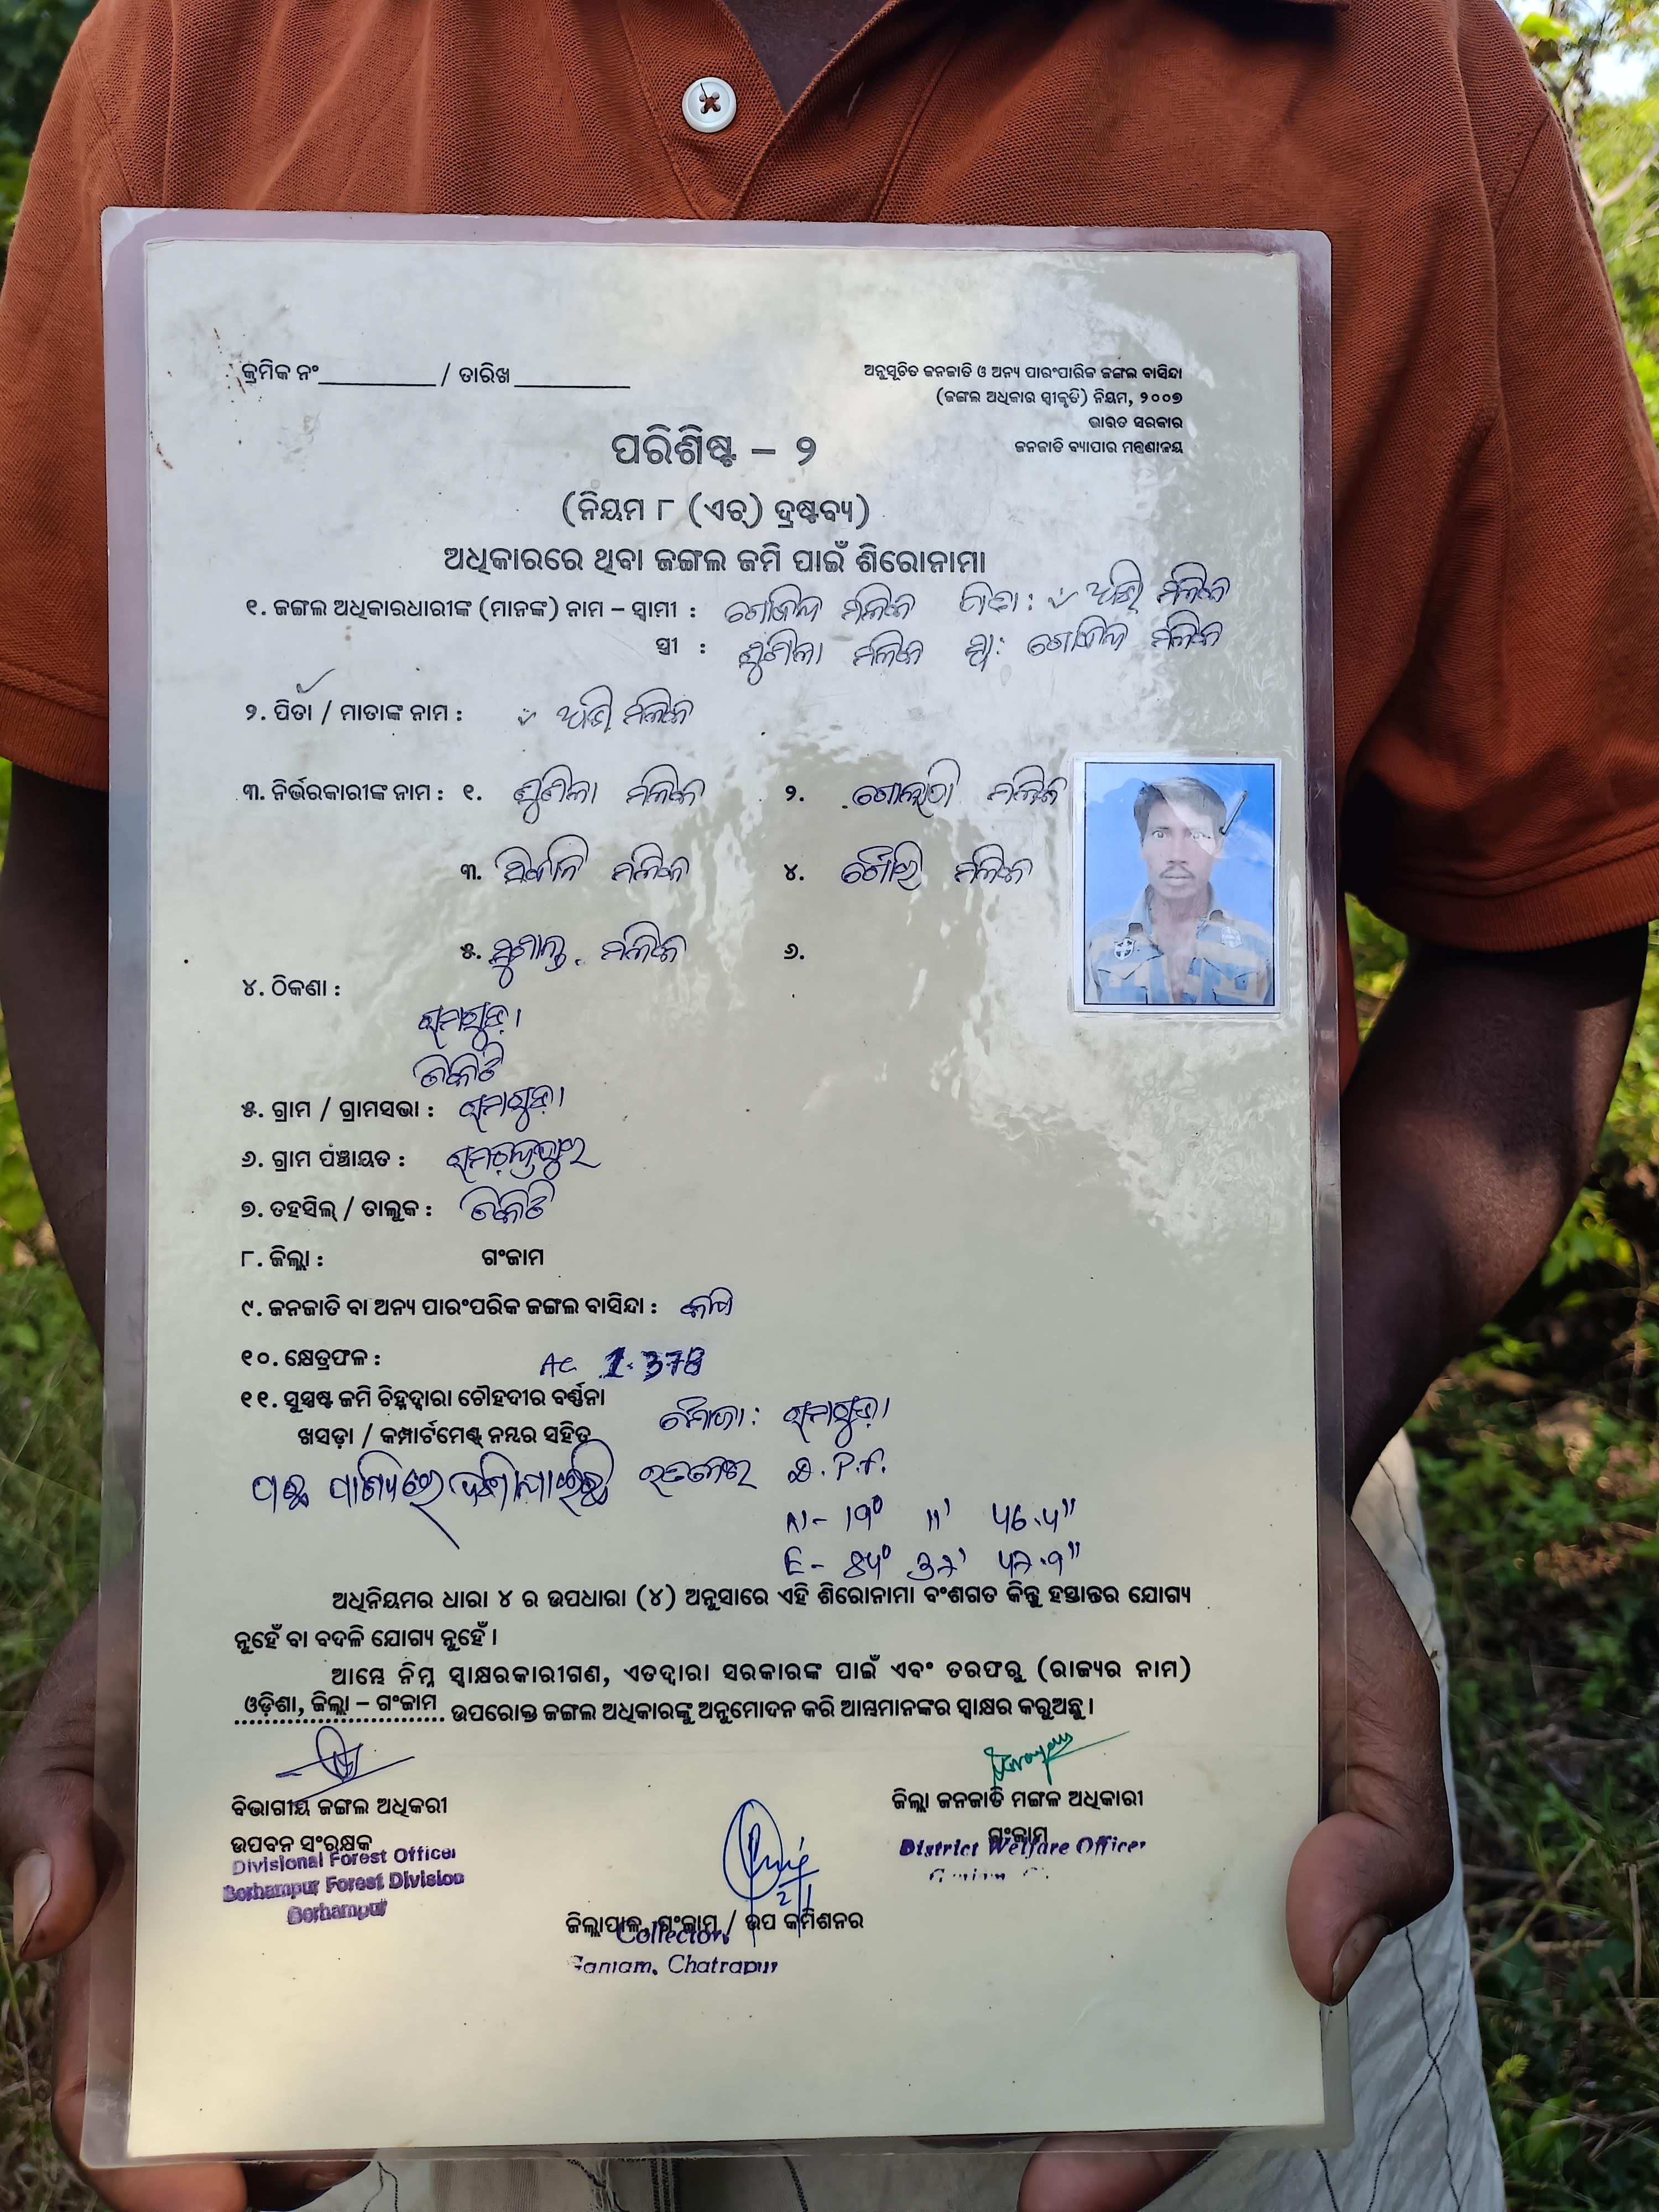 କ୍ରମିକ ନଂ__________ / ତାରିଖ__________
ଅନୁସୂଚିତ ଜନଜାତି ଓ ଅନ୍ୟ ପାରଂପାରିକ ଜଙ୍ଗଲ ବାସିନ୍ଦା
(ଜଙ୍ଗଲ ଅଧିକାର ସ୍ୱୀକୃତି) ନିୟମ, ୨୦୦୭
ଭାରତ ସରକାର
ଜନଜାତି ବ୍ୟାପାର ମନ୍ତ୍ରଣାଳୟ
ପରିଶିଷ୍ଟ – ୨
(ନିୟମ ୮ (ଏଚ୍) ଦ୍ରଷ୍ଟବ୍ୟ)
ଅଧିକାରରେ ଥିବା ଜଙ୍ଗଲ ଜମି ପାଇଁ ଶିରୋନାମା
୧. ଜଙ୍ଗଲ ଅଧିକାରଧାରୀଙ୍କ (ମାନଙ୍କ) ନାମ – ସ୍ୱାମୀ : ଗୋବିନ୍ଦ ମଲିକ ପିତା : ମଲିକ
ସ୍ତ୍ରୀ : ମଲିକ ସ୍ୱା: ଗୋବିନ୍ଦ ମଲିକ
୨. ପିତା / ମାତାଙ୍କ ନାମ : ମଲିକ
୩. ନିର୍ଭରକାରୀଙ୍କ ନାମ : ୧. ମଲିକ ୨. ମଲିକ
୩. ମଲିକ ୪. ମଲିକ
୫. ସୁଶାନ୍ତ ମଲିକ ୬.
୪. ଠିକଣା :
ରାମାଗୁଡ଼ା
ଚିକିଟି
୫. ଗ୍ରାମ / ଗ୍ରାମସଭା : ରାମାଗୁଡ଼ା
୬. ଗ୍ରାମ ପଞ୍ଚାୟତ : ରାମଚନ୍ଦ୍ରପୁର
୭. ତହସିଲ୍ / ତାଲୁକ : ଚିକିଟି
୮. ଜିଲ୍ଲା : ଗଂଜାମ
୯. ଜନଜାତି ବା ଅନ୍ୟ ପାରଂପରିକ ଜଙ୍ଗଲ ବାସିନ୍ଦା :
୧୦. କ୍ଷେତ୍ରଫଳ : AC 1.378
୧୧. ସୁସ୍ପଷ୍ଟ ଜମି ଚିହ୍ନଦ୍ୱାରା ଚୌହଦୀର ବର୍ଣ୍ଣନା
ଖସଡ଼ା / କମ୍ପାର୍ଟମେଣ୍ଟ ନମ୍ବର ସହିତ
ମୌଜା : ରାମାଗୁଡ଼ା
D.P.F.
N- 19° 11'
E-
ଅଧିନିୟମର ଧାରା ୪ ର ଉପଧାରା (୪) ଅନୁସାରେ ଏହି ଶିରୋନାମା ବଂଶଗତ କିନ୍ତୁ ହସ୍ତାନ୍ତର ଯୋଗ୍ୟ
ନୁହେଁ ବା ବଦଳି ଯୋଗ୍ୟ ନୁହେଁ ।
ଆମ୍ଭେ ନିମ୍ନ ସ୍ୱାକ୍ଷରକାରୀଗଣ, ଏତଦ୍ୱାରା ସରକାରଙ୍କ ପାଇଁ ଏବଂ ତରଫରୁ (ରାଜ୍ୟର ନାମ)
ଓଡ଼ିଶା, ଜିଲ୍ଲା – ଗଂଜାମ ଉପରୋକ୍ତ ଜଙ୍ଗଲ ଅଧିକାରଙ୍କୁ ଅନୁମୋଦନ କରି ଆମ୍ଭମାନଙ୍କର ସ୍ୱାକ୍ଷର କରୁଅଛୁ ।
ବିଭାଗୀୟ ଜଙ୍ଗଲ ଅଧିକରୀ
ଉପବନ ସଂରକ୍ଷକ
Divisional Forest Officer
Berhampur Forest Division
Berhampur
ଜିଲ୍ଲା ଜନଜାତି ମଙ୍ଗଳ ଅଧିକାରୀ
ଗଂଜାମ
District Welfare Officer
ଜିଲ୍ଲାପାଳ, ଗଂଜାମ / ଉପ କମିଶନର
Collector,
Ganjam, Chatrapur